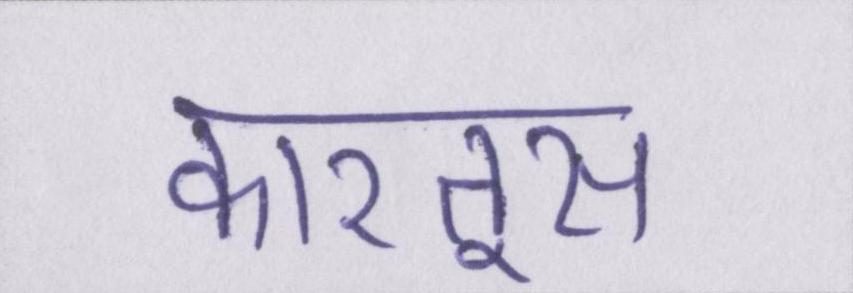 कारतूस